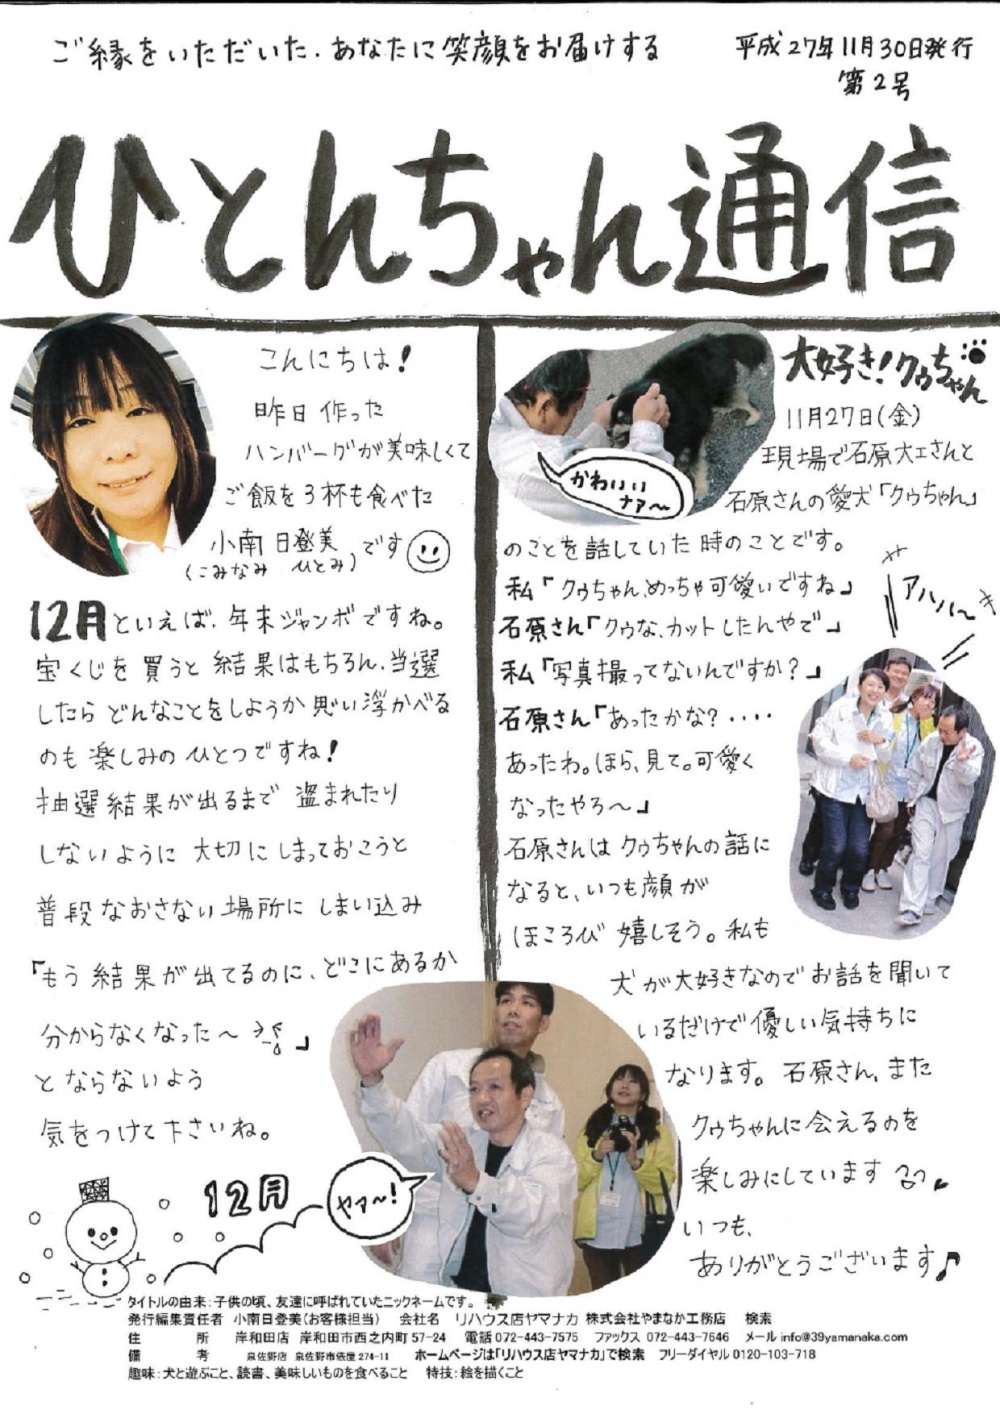 ご縁をいただいた、あなたに笑顔をお届けする
平成27年11月30日発行
第2号
ひとんちゃん通信
こんにちは!
昨日作った
ハンバーグが美味しくて
ご飯を3杯も食べた
小南日登美です
(こみなみ ひとみ)
12月といえば、年末ジャンボですね。
宝くじを買うと結果はもちろん、当選
したらどんなことをしようか思い浮かべる
のも楽しみのひとつですね!
抽選結果が出るまで盗まれたり
しないように大切にしまっておこうと
普段なおさない場所にしまい込み
「もう結果が出てるのに、どこにあるか
分からなくなった〜」
とならないよう
気をつけて下さいね。
12月
ヤァ〜!
かわいい
ナァ〜
大好き!クゥちゃん
11月27日(金)
現場で石原大工さんと
石原さんの愛犬「クゥちゃん」
のことを話していた時のことです。
私「クゥちゃん、めっちゃ可愛いですね」
石原さん「クゥな、カットしたんやで」
私「写真撮ってないんですか?」
石原さん「あったかな?・・・・
あったわ。ほら、見て。可愛く
なったやろ〜」
アハハ〜
石原さんはクゥちゃんの話に
なると、いつも顔が
ほころび嬉しそう。私も
犬が大好きなのでお話を聞いて
いるだけで優しい気持ちに
なります。石原さん、また
クゥちゃんに会えるのを
楽しみにしています
いつも、
ありがとうございます♪
タイトルの由来:子供の頃、友達に呼ばれていたニックネームです。
発行編集責任者 小南日登美(お客様担当) 会社名 リハウス店ヤマナカ 株式会社やまなか工務店 検索
住 所 岸和田店 岸和田市西之内町57-24 電話072-443-7575 ファックス 072-443-7646 メール info@39yamanaka.com
備 考 泉佐野店 泉佐野市俵屋274-11 ホームページは「リハウス店ヤマナカ」で検索 フリーダイヤル0120-103-718
趣味:犬と遊ぶこと、読書、美味しいものを食べること 特技:絵を描くこと